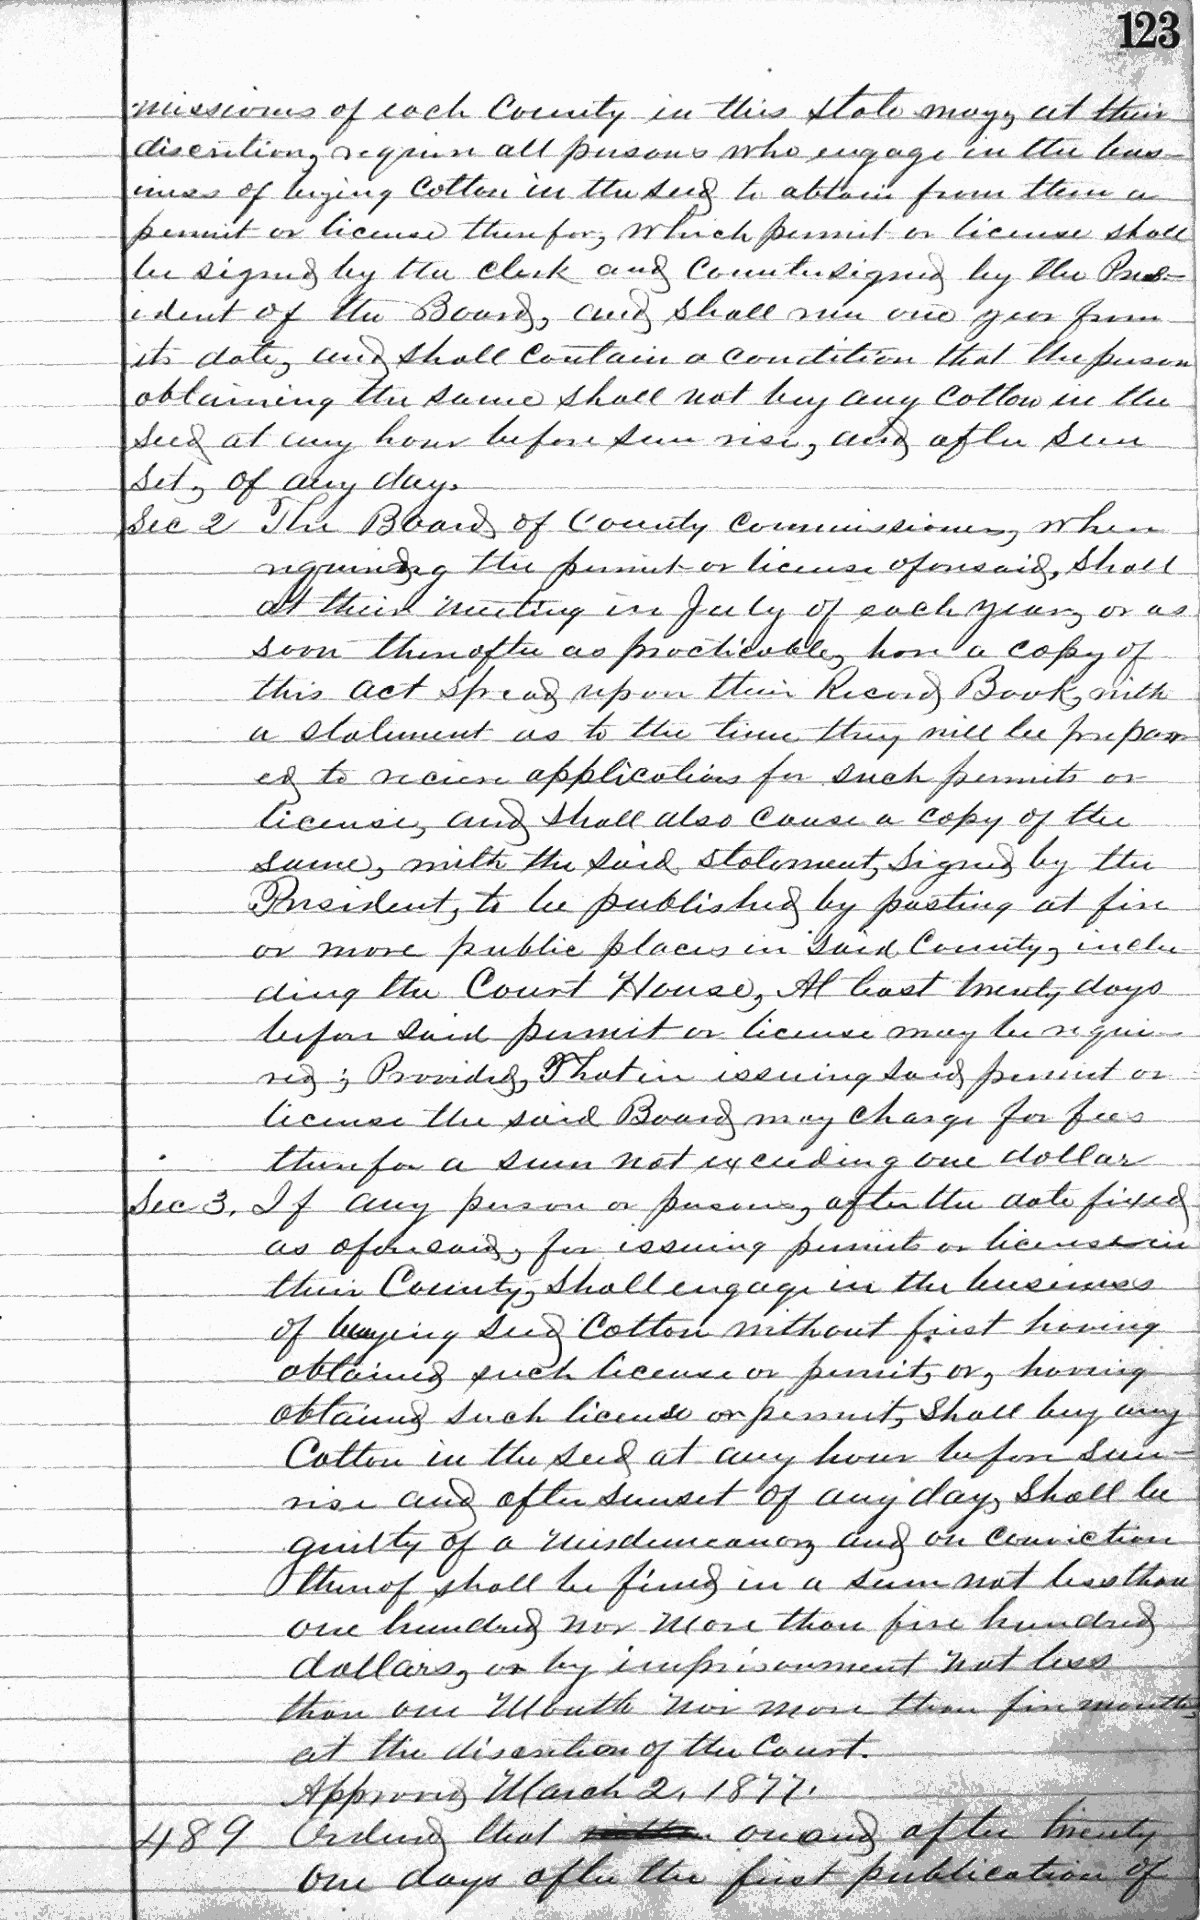 123
missioners of each County in this state may, at their
discretion, require all persons who engage in the bus-
iness of buying Cotton in the seed to obtain from them a
permit or license therefor, which permit or license shall
be signed by the clerk and Countersigned by the Pres-
ident of the Board, and shall run one year from
its date, and shall contain a condition that the person
obtaining the same shall not buy any Cotton in the
seed at any hour before sun rise, and after sun
set, of any day.
Sec 2 The Board of County Commissioners, when
requiring the permit or license aforesaid, shall
at their meeting in July of each year, or as
soon thereafter as practicable, have a copy of
this act spread upon their Record Book, with
a statement as to the time they will be prepar
ed to recieve applications for such permits or
license, and shall also cause a copy of the
same, with the said statement, signed by the
President, to be published by posting at five
or more public places in said County, inclu
ding the Court House, At least twenty days
before said permit or license may be requi-
red; Provided, That in issuing said permit or
license the said Board may charge for fees
therefor a sum not exceeding one dollar
Sec 3. If any person or persons, after the date fixed
as aforesaid, for issuing permits or license in
their County, shall engage in the business
of buying seed Cotton without first having
obtained such license or permit, or, having
obtained such license or permit, shall buy any
Cotton in the seed at any hour before sun-
rise and after sunset of any day, shall be
guilty of a misdemeanor, and on conviction
thereof shall be fined in a sum not less than
one hundred nor more than five hundred
dollars, or by imprisonment not less
than one Month nor more than five months
at the discretion of the Court.
Approved March 2, 1877.
489 Ordered that on and after twenty
one days after the first publication of